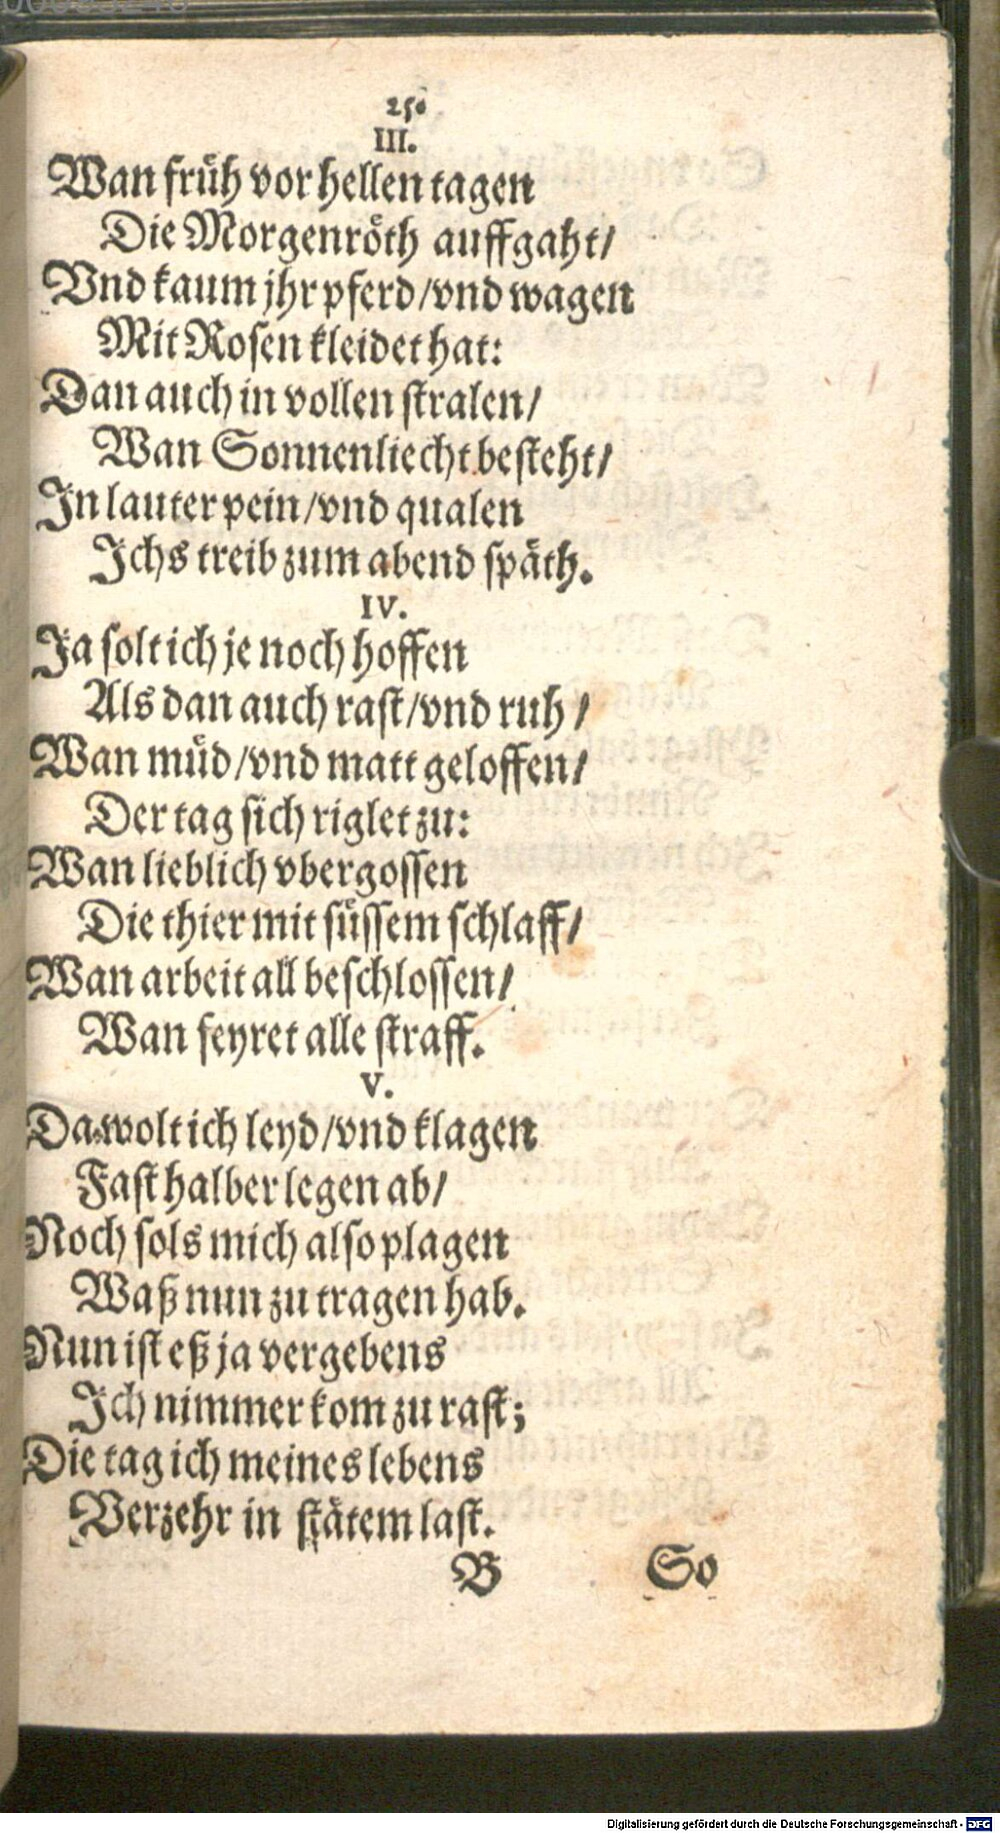 25.
III.
Wan früh vor hellen tagen
Die Morgenröth auffgaht/
Vnd kaum jhr pferd/vnd wagen
Mit Rosen kleidet hat:
Dan auch in vollen stralen/
Wan Sonnenliecht besteht/
In lauter pein/vnd qualen
Ichs treib zum abend späth.
IV.
Ja solt ich je noch hoffen
Als dan auch rast/vnd ruh/
Wan müd/vnd matt geloffen/
Der tag sich riglet zu:
Wan lieblich vbergossen
Die thier mit süssem schlaff/
Wan arbeit all beschlossen/
Wan feyret alle straff.
V.
Da wolt ich leyd/vnd klagen
Fast halber legen ab/
Noch sols mich also plagen
Waß nun zu tragen hab.
Nun ist eß ja vergebens
Ich nimmer kom zu rast;
Die tag ich meines lebens
Verzehr in stätem last.
B So
Digitalisierung gefördert durch die Deutsche Forschungsgemeinschaft - DFG